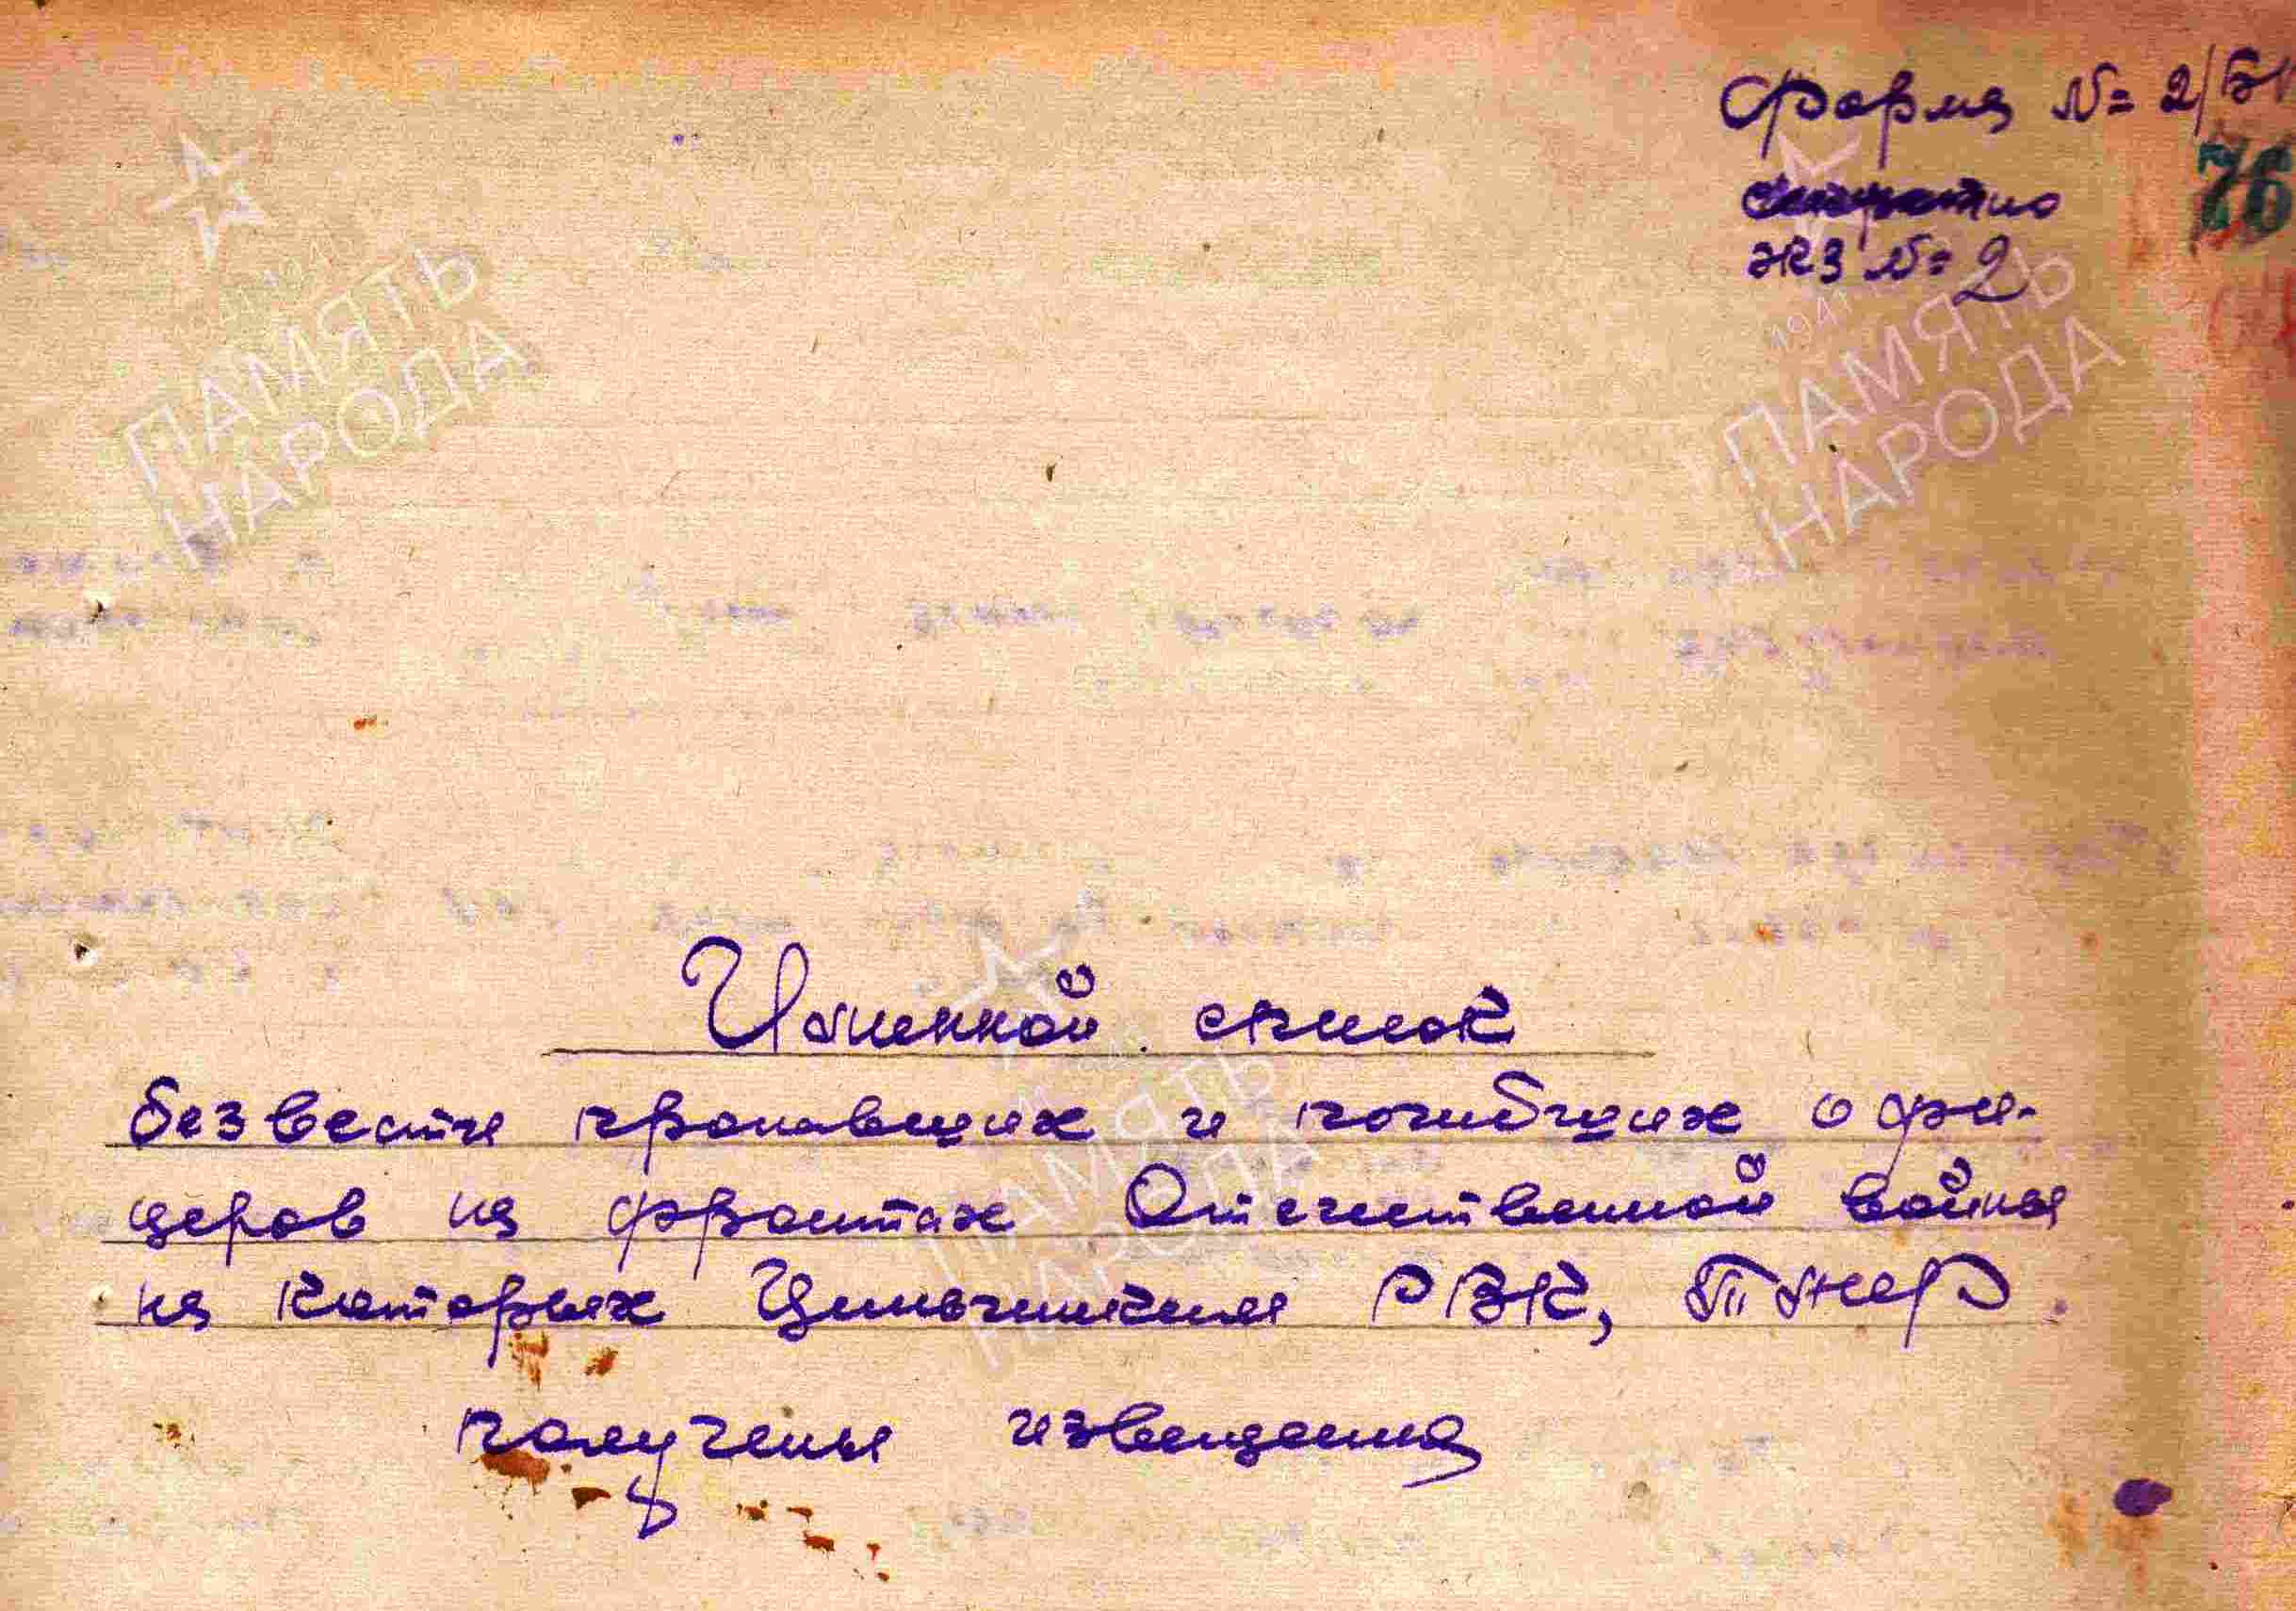 Форма № 2/БП
76
экз № 2
Именной список
безвести пропавших и погибших офи-
церов на фронтах Отечественной войны
на которых РВК,
получены извещения
1941
ПАМЯТЬ
НАРОДА
1941
ПАМЯТЬ
НАРОДА
ПАМЯТЬ
НАРОДА